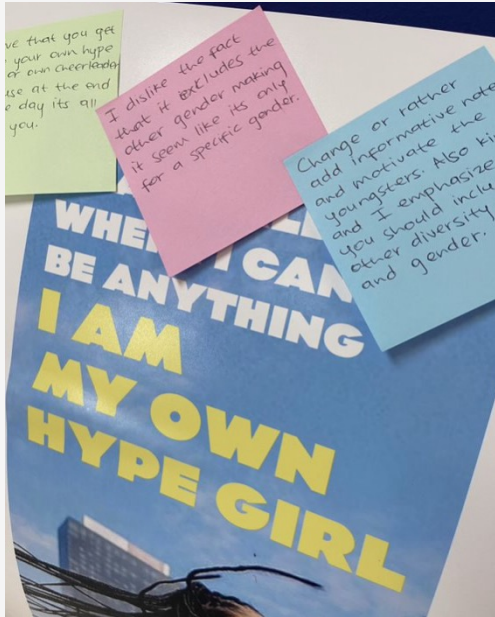 ve that you get
your own hype
or own cheerleader
use at the end
e day its all
you.
I dislike the fact
that it excludes the
other gender making
it seem like its only
for a specific gender.
Change or rather
add informative note
and motivate the
youngsters. Also ki
and I emphasize
you should inclu
other diversity
and gender.
WHE I CAN
BE ANYTHING
I AM
MY OWN
HYPE GIRL